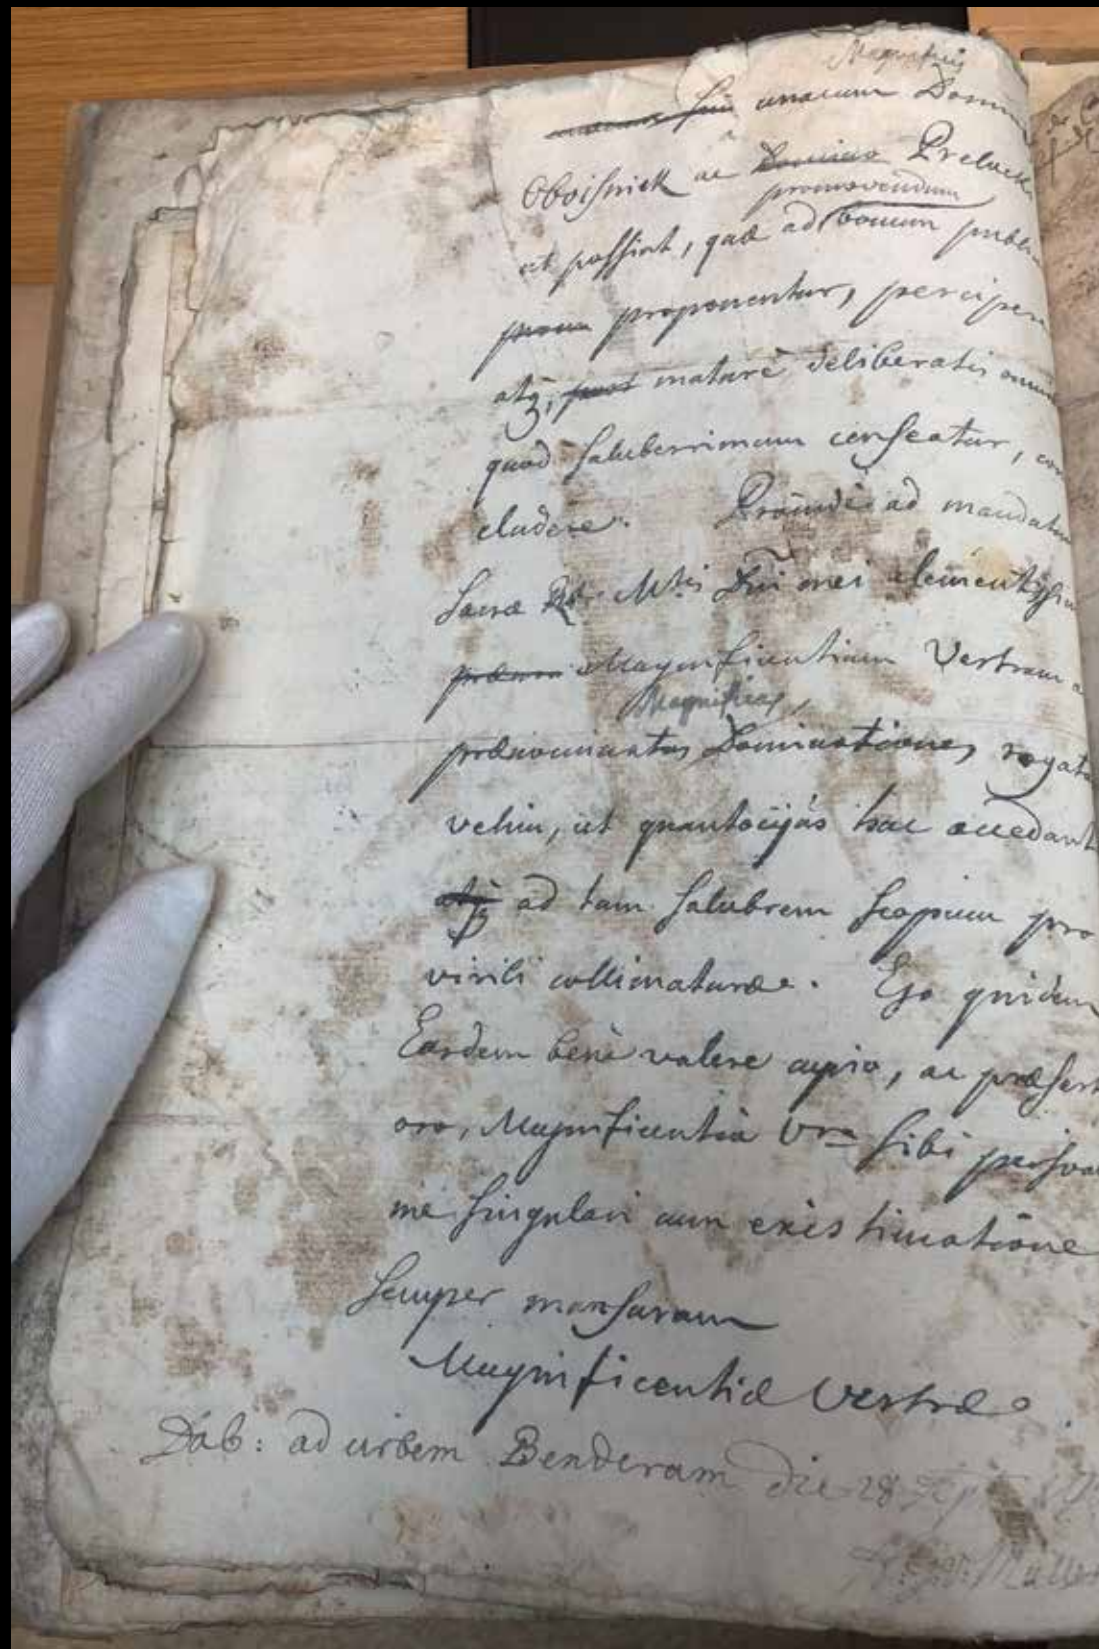 Magnificis
unacum Domi
Oboisniek ac Domino Preluck
promovendum
ut possint, quæ ad bonum publi
proponentur, percipere
atq; post maturè deliberatis omni
quod saluberrimum censeatur, con
cludere. Proindè ad mandatu
Sacræ Mtis Dni mei clementissi
Magnificentiam Vestram a
Magnificas,
prænominatas Dominationes, rogata
velim, ut quantocijùs huc accedant
atq; ad tam salubrem scopum pro
virili collimaturæ. Ego quidem
Easdem benè valere cupio, ac præsert
oro, Magnificentia Vra sibi persva
me singulari cum existimatione
semper mansurum
Magnificentiæ Vestræ.
Dab: ad urbem Benderam die 28 Sept
Müller